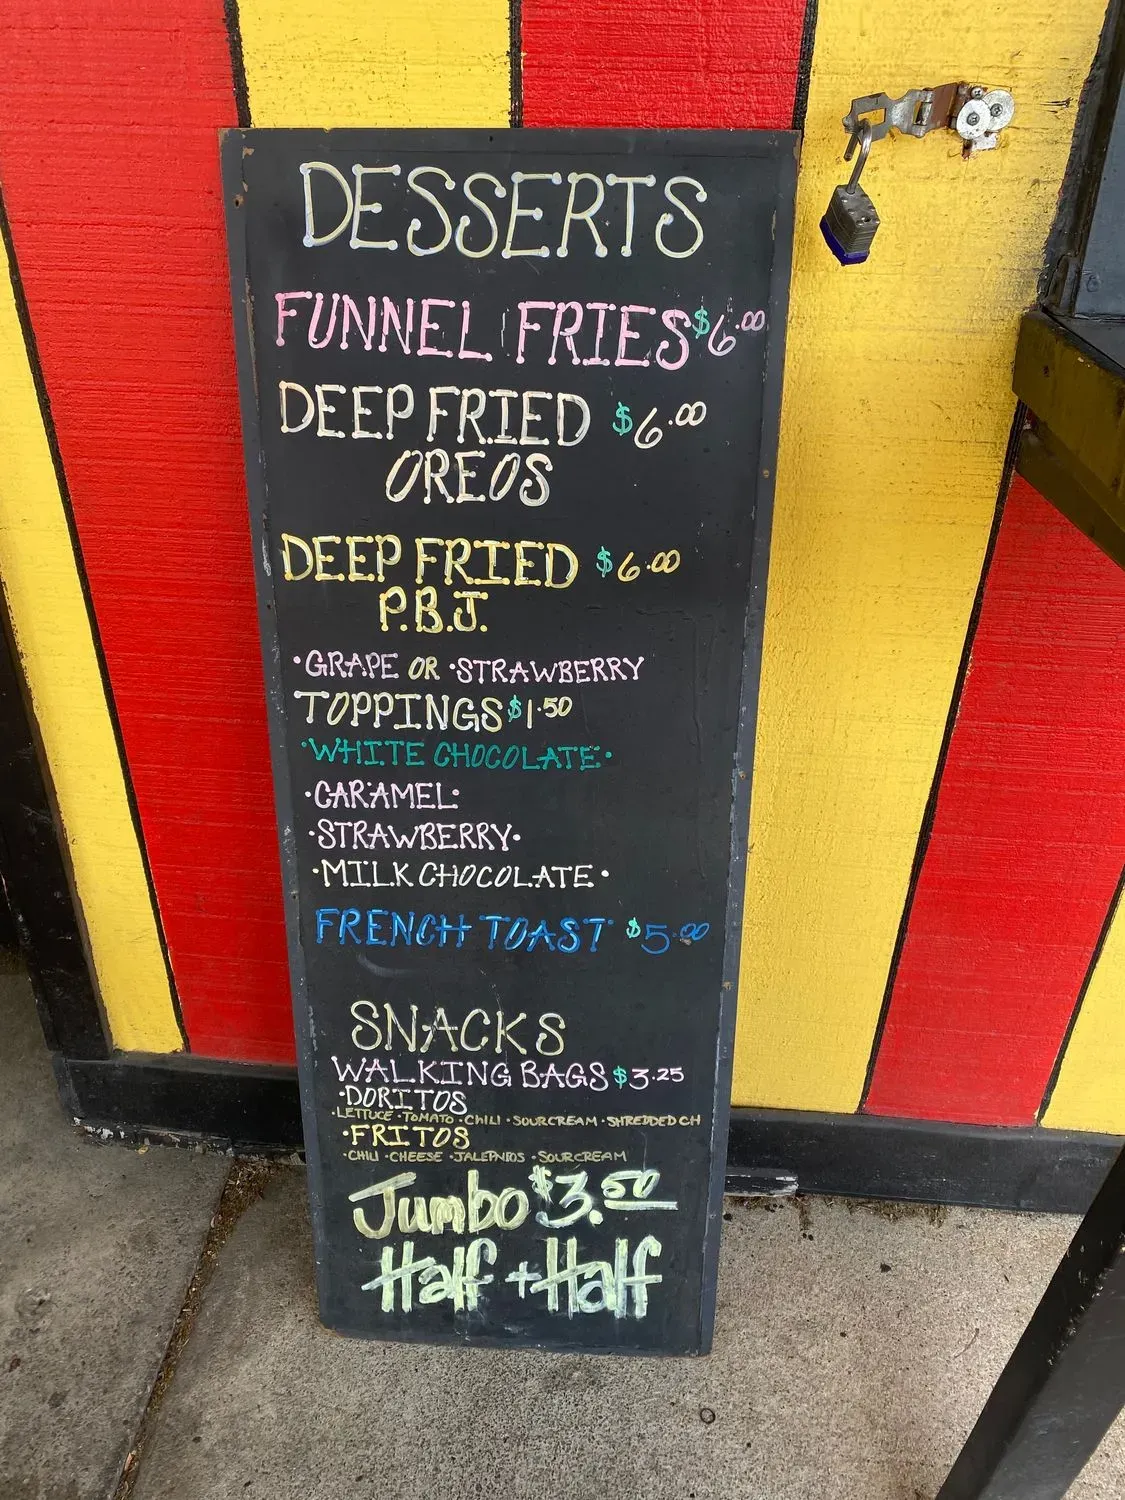 DESSERTS
FUNNEL FRIES $6.00
DEEP FRIED $6.00
OREOS
DEEP FRIED $6.00
P.B.J.
·GRAPE OR ·STRAWBERRY
TOPPINGS $1.50
·WHITE CHOCOLATE·
·CARAMEL·
·STRAWBERRY·
·MILK CHOCOLATE·
FRENCH TOAST $5.00
SNACKS
WALKING BAGS $3.25
·DORITOS
·LETTUCE ·TOMATO ·CHILI ·SOUR CREAM ·SHREDDED CH
·FRITOS
·CHILI ·CHEESE ·JALEPNIOS ·SOUR CREAM
Jumbo $3.50
Half + Half